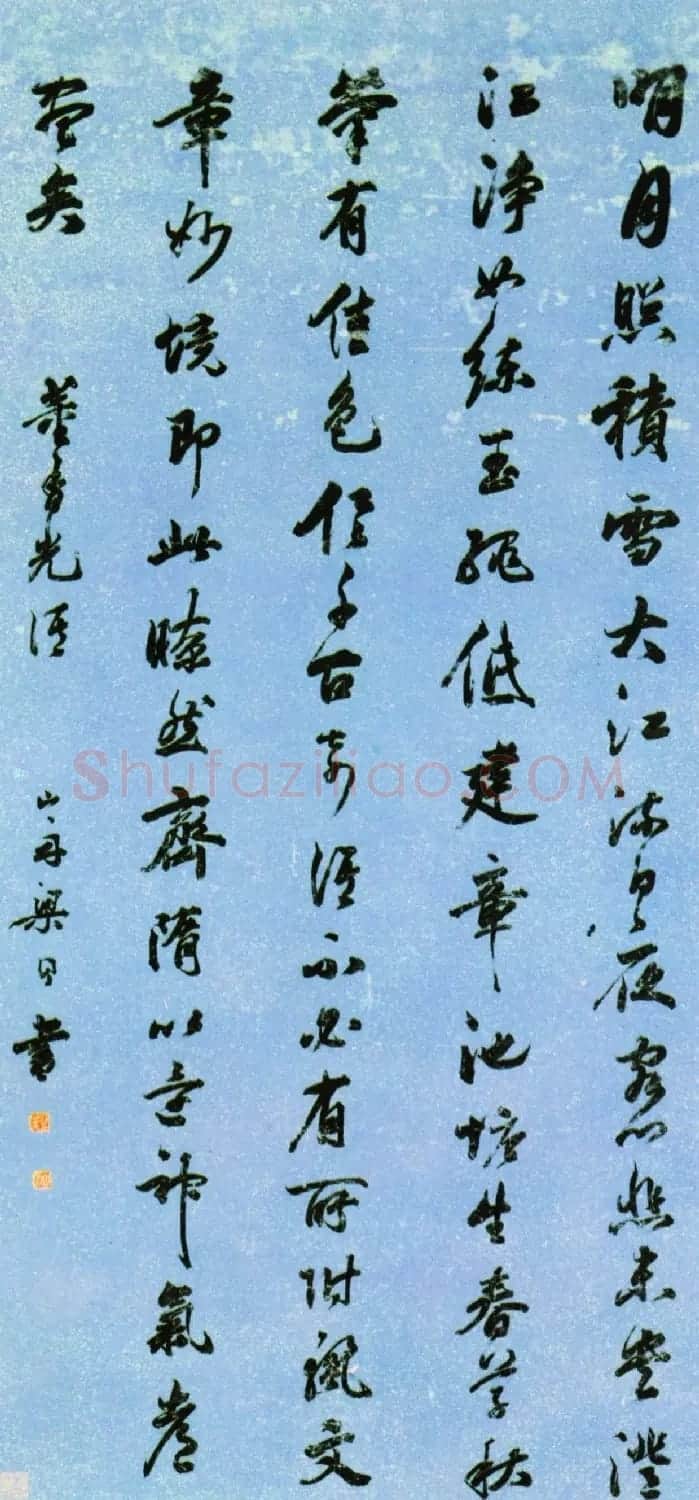 明月照積雪大江流日夜客心悲未央澄
江淨如練玉繩低建章池塘生春草秋
菊有佳色俱千古奇語不必有所附麗文
章妙境即此瞭然齊隋以還神氣都
盡矣 董香光語 山舟梁同書
Shufaziliao.COM